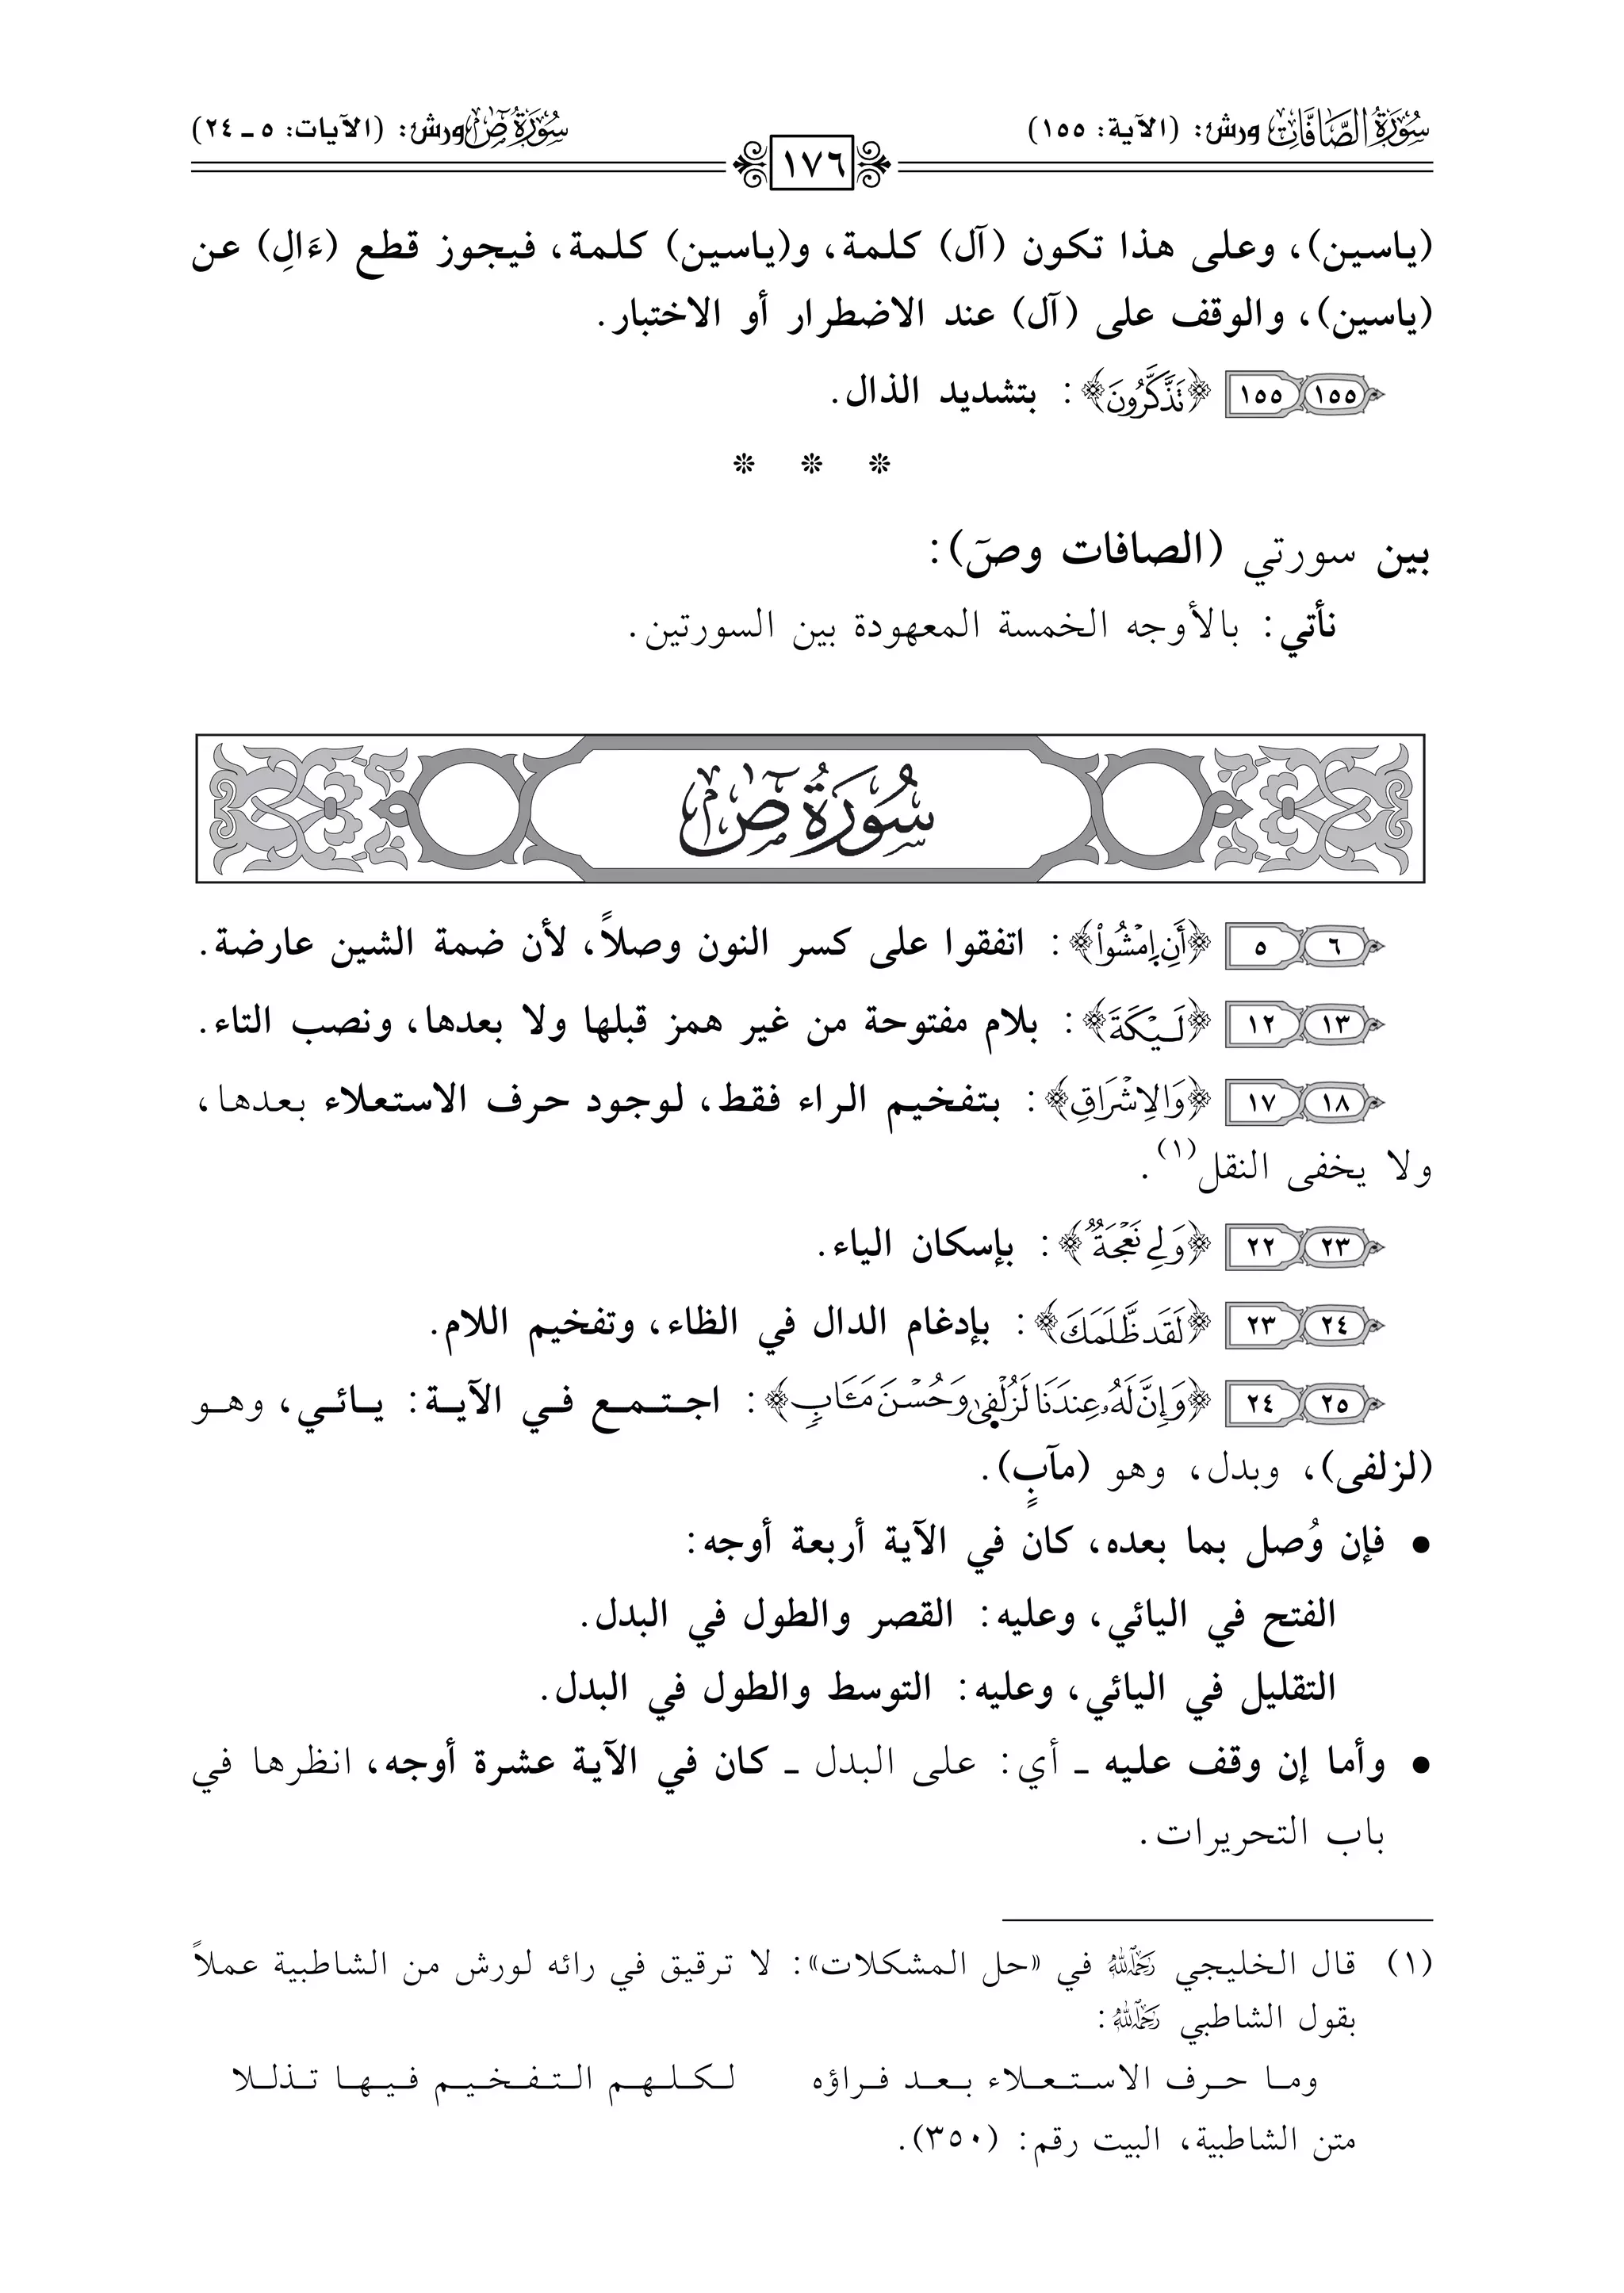 سُورَةُ الصَّافَّاتِ ورش: (الآية: ١٥٥)
١٧٦
سُورَةُ صٓ ورش: (الآيات: ٥ ـ ٢٤)
(ياسين)، وعلى هذا تكون (آل) كلمة، و(ياسين) كلمة، فيجوز قطع (ءَالِ) عن
(ياسين)، والوقف على (آل) عند الاضطرار أو الاختبار.
١٥٥ ١٥٥ ﴿تَذَّكَّرُونَ﴾: بتشديد الذال.
❊ ❊ ❊
بين سورتي (الصافات وصٓ):
نأتي: بالأوجه الخمسة المعهودة بين السورتين.
سُورَةُ صٓ
٦ ٥ ﴿أَنِ اِمْشُواْ﴾: اتفقوا على كسر النون وصلاً، لأن ضمة الشين عارضة.
١٣ ١٢ ﴿لَيْكَةَ﴾: بلام مفتوحة من غير همز قبلها ولا بعدها، ونصب التاء.
١٨ ١٧ ﴿وَالِاشْرَاقِ﴾: بتفخيم الراء فقط، لوجود حرف الاستعلاء بعدها،
ولا يخفى النقل(١).
٢٣ ٢٢ ﴿وَلِے نَعْجَةٌ﴾: بإسكان الياء.
٢٤ ٢٣ ﴿لَقَد ظَّلَمَكَ﴾: بإدغام الدال في الظاء، وتفخيم اللام.
٢٥ ٢٤ ﴿وَإِنَّ لَهُۥ عِندَنَا لَزُلْفۭىٰ وَحُسْنَ مَـَٔابٍ﴾: اجتمع في الآية: يائي، وهو
(لزلفى)، وبدل، وهو (مآبٍ).
• فإن وُصل بما بعده، كان في الآية أربعة أوجه:
الفتح في اليائي، وعليه: القصر والطول في البدل.
التقليل في اليائي، وعليه: التوسط والطول في البدل.
• وأما إن وقف عليه ـ أي: على البدل ـ كان في الآية عشرة أوجه، انظرها في
باب التحريرات.
(١) قال الخليجي رَحِمَهُ اللَّهُ في «حل المشكلات»: لا ترقيق في رائه لورش من الشاطبية عملاً
بقول الشاطبي رَحِمَهُ اللَّهُ:
وما حرف الاستعلاء بعد فراؤه لكلهم التفخيم فيها تذللا
متن الشاطبية، البيت رقم: (٣٥٠).